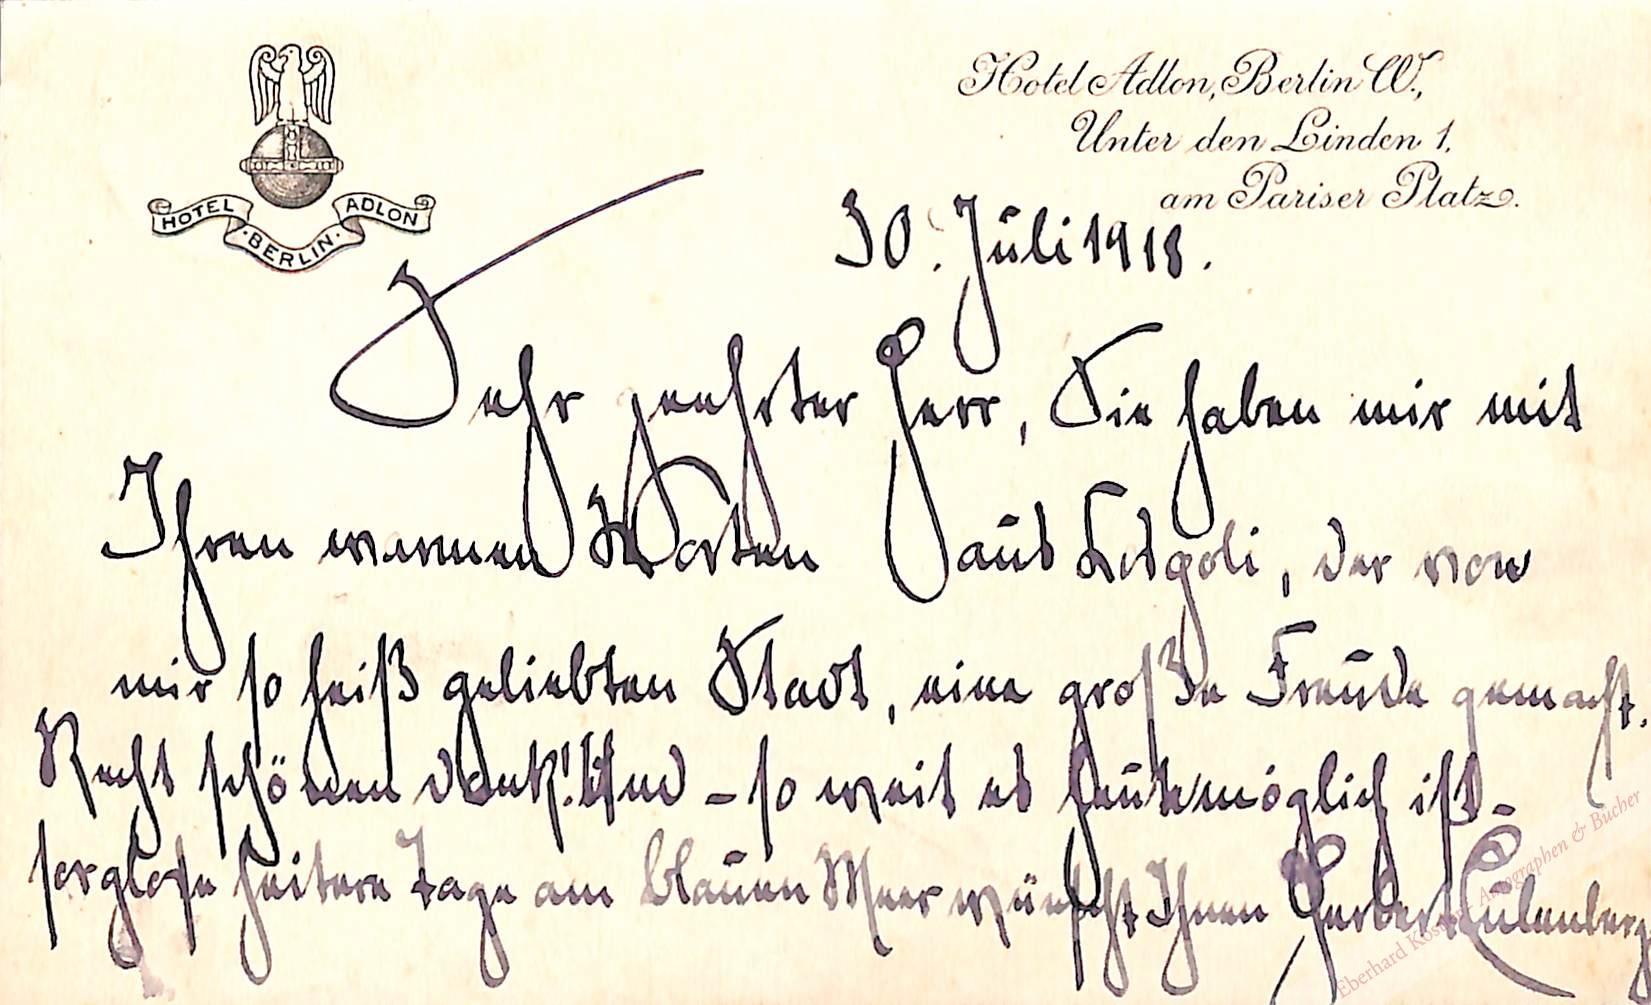 HOTEL ADLON
·BERLIN·
Hotel Adlon, Berlin W.,
Unter den Linden 1.
am Pariser Platz.
30. Juli 1918.
Sehr geehrter Herr, Sie haben mir mit
Ihren warmen Worten aus, der von
mir so heiß geliebten Stadt, eine große Freude gemacht.
Recht schönen Dank! Und – so weit es heute möglich ist –
sorglose heitere Tage am blauen Meer wünscht Ihnen Herbert Eulenberg
Eberhard Köstler Autographen & Bücher